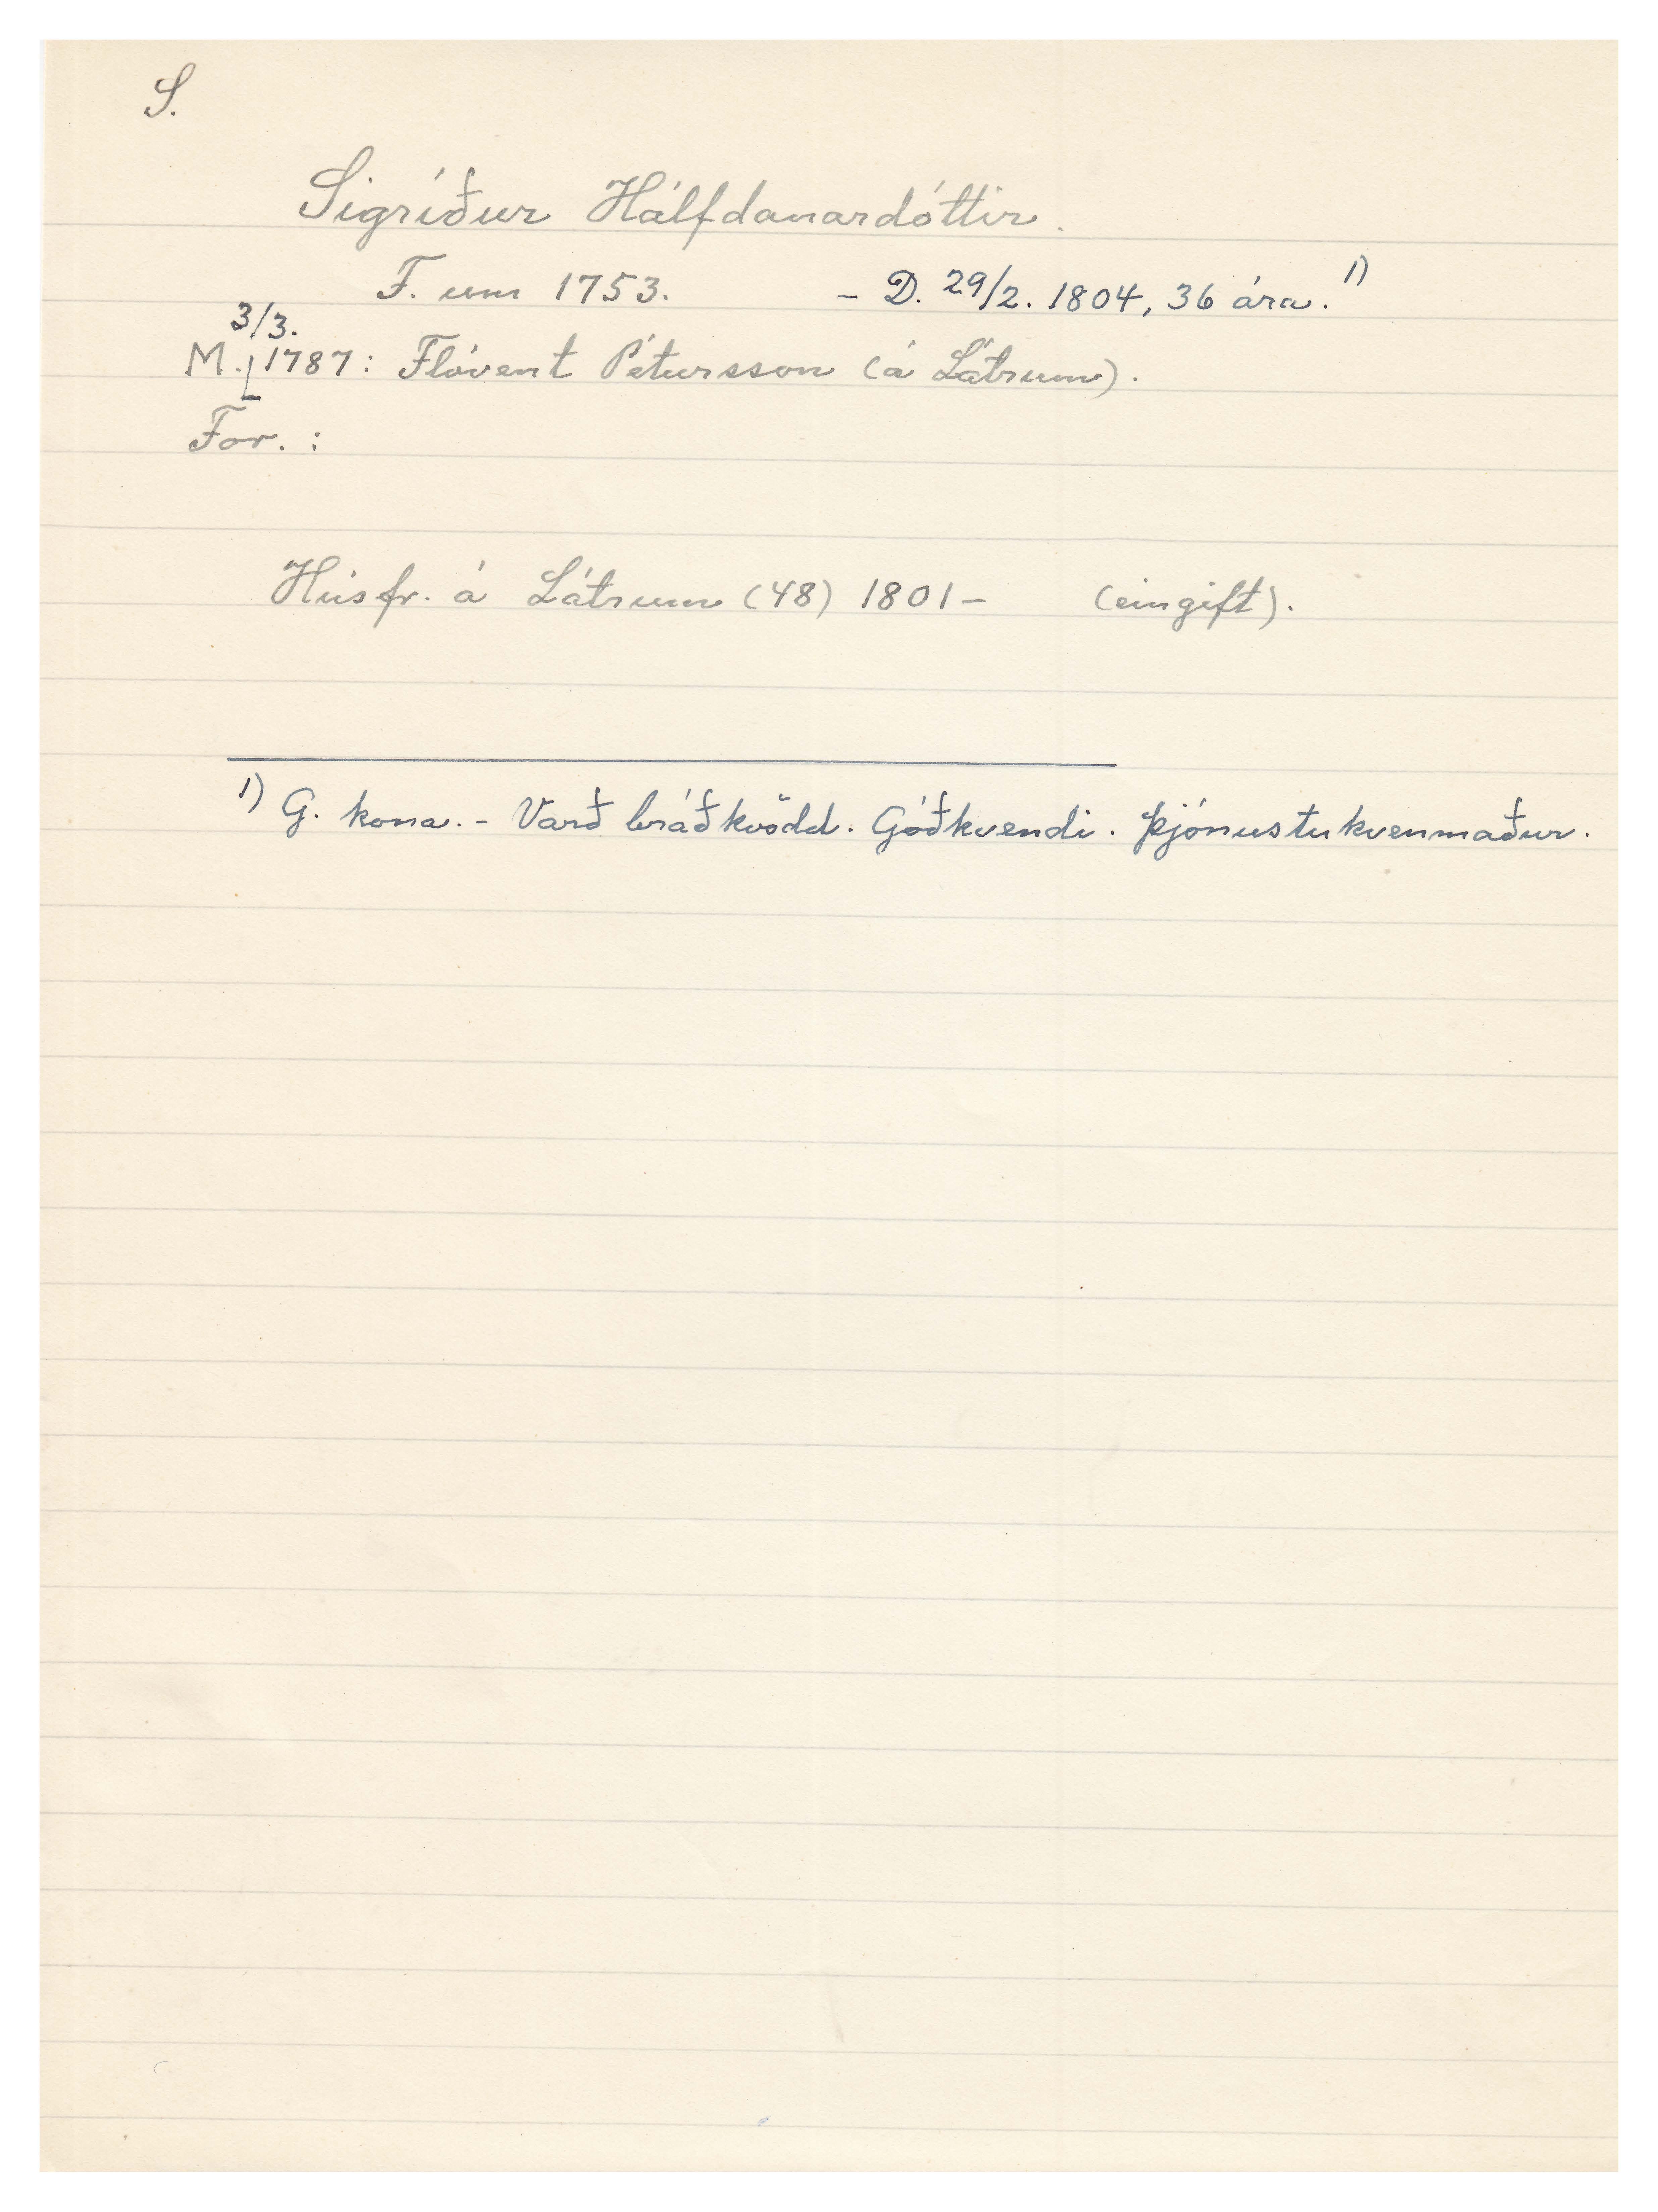 S.
Sigríður Hálfdanardóttir.
F. um 1753. - D. 29/2. 1804, 36 ára. 1)
3/3.
M. 1787: Flóvent Pétursson (á Látrum).
For. :
Húsfr. á Látrum (48) 1801 - (eingift).
1) G. kona. - Varð bráðkvödd. Góðkvendi. Þjónustukvenmaður.